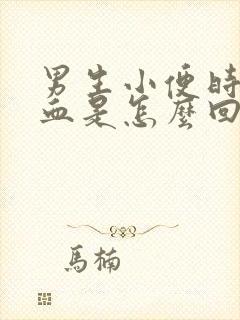 男生小便時
血是怎麼回
馬楠